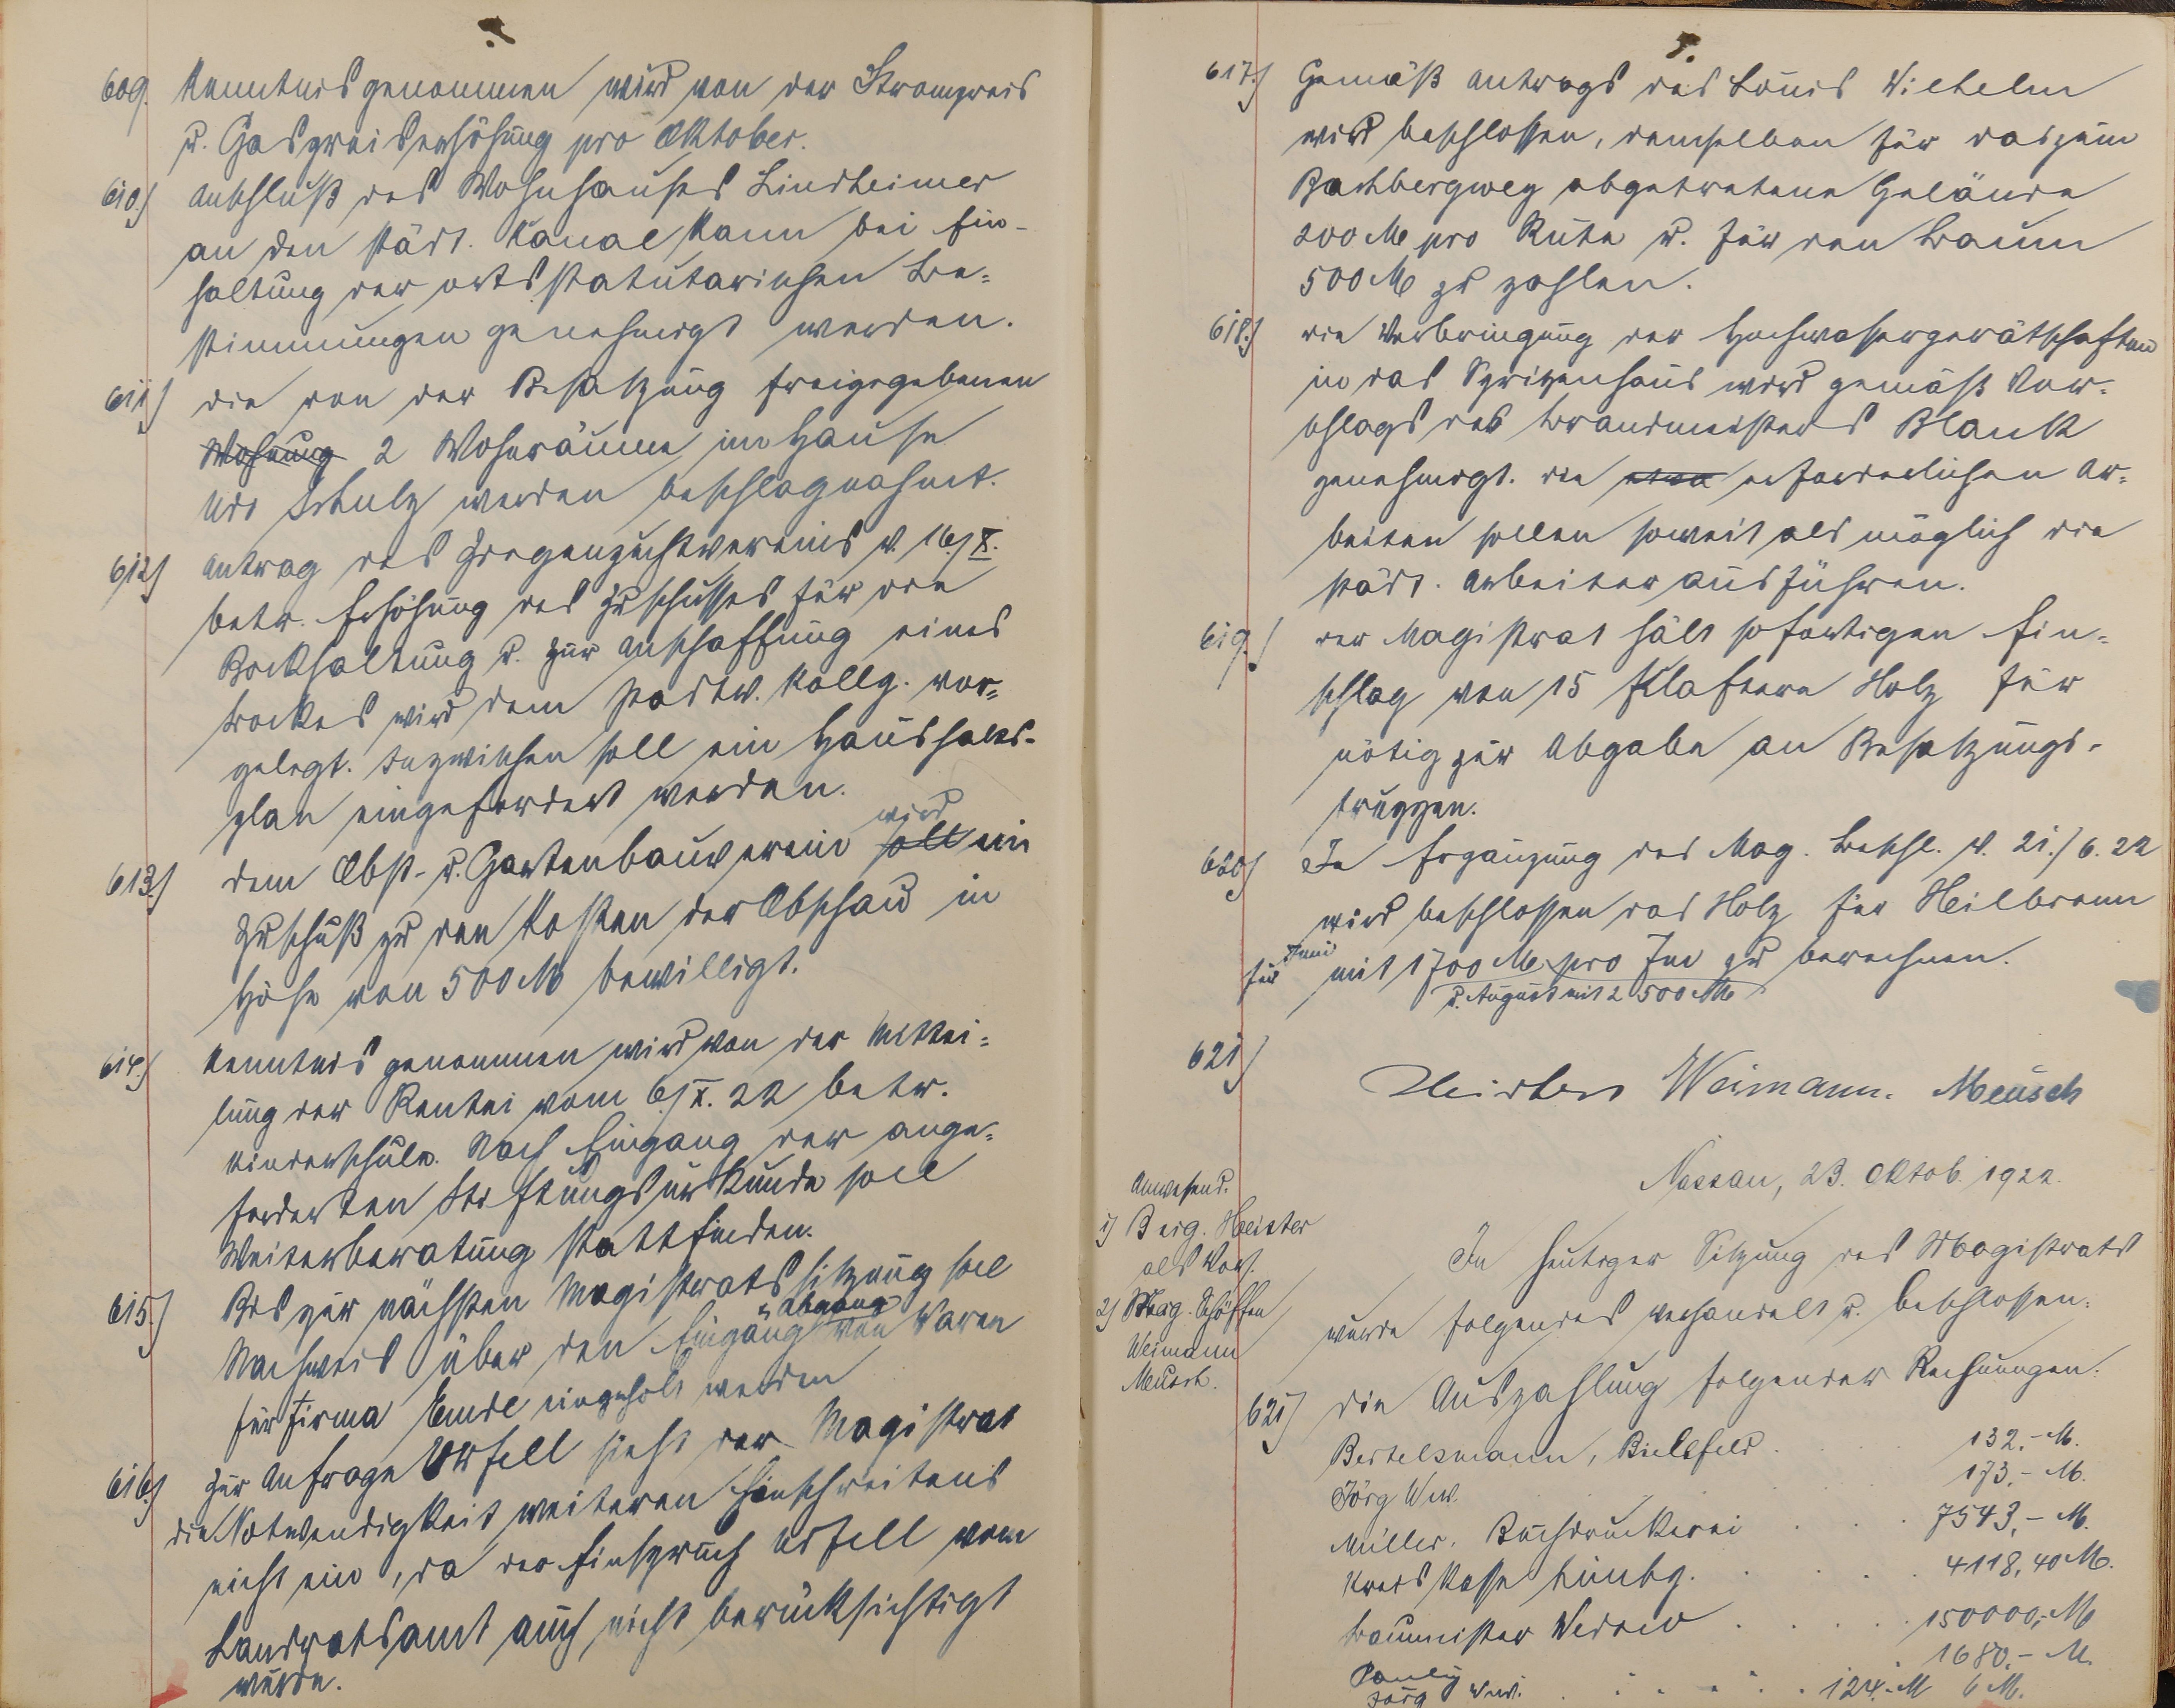 609. Kenntnis genommen wird von der Strompreis
u. Gaspreiserhöhung pro Oktober.
610.) Anschluß des Wohnhauses Lindheimer
an den städt. Kanal kann bei Ein-
haltung der ortsstatutarischen Be=
stimmungen genehmigt werden.
611) die von der Besatzung freigegebenen
Wohnung 2 Wohnräume im Hause
Udo Schulz werden beschlagnahmt.
612) Antrag des Ziegenzuchtvereins v. 16./X.
betr. Erhöhung des Zuschusses für die
Bockhaltung u. zur Anschaffung eines
Bockes wird dem Stadtv. Kollg. vor=
gelegt. Inzwischen soll ein Haushalts-
plan eingefordert werden.
wird
613.) dem Obst- u. Gartenbauverein soll ein
Zuschuß zu den Kosten der Obstschau in
Höhe von 500 M bewilligt.
614.) Kenntnis genommen wird von der Mittei=
lung der Rentei vom 6./X. 22 betr.
Kinderschule. Nach Eingang der ange=
forderten Stiftungsurkunde soll
Weiterberatung stattfinden.
615.) Bis zur nächsten Magistratssitzung soll
u. Abgang
Nachweis über den Eingang von Waren
für Firma Emde eingeholt werden
616.) Zur Anfrage Urfell sieht der Magistrat
die Notwendigkeit weiteren Einschreitens
nicht ein, da der Einspruch Urfell vom
Landratsamt auch nicht berücksichtigt
wurde.
617.) Gemäß Antrags des Louis Wilhelm
wird beschlossen, demselben für das zum
Bachbergweg abgetretene Gelände
200 M pro Rute u. für den Baum
500 M zu zahlen.
618.) die Verbringung der Hochwassergerätschaften
in das Spritzenhaus wird gemäß Vor=
schlags des Brandmeisters Blank
genehmigt. die etwa erforderlichen Ar=
beiten sollen soweit als möglich die
städt. Arbeiter ausführen.
619.) der Magistrat hält sofortigen Ein=
schlag von 15 Klaftern Holz für
nötig zur Abgabe an Besatzungs-
truppen.
620) In Ergänzung des Mag. Beschl. v. 21./6.22
wird beschlossen das Holz für Heilbronn
für Juni mit 1700 M pro Fm zu berechnen.
u. August mit 2500 M
621)
Weimann. Meusch
Nassau, 23. Oktob. 1922.
Anwesend.
1) Berg. Meister
als Vors.
2) Mag. Schöffen
Weimann
Meusch.
In heutiger Sitzung des Magistrats
wurde folgendes verhandelt u. beschlossen:
621) die Auszahlung folgender Rechnungen:
Bertelsmann, Bielefeld . 132.- M.
Jörg Ww. 173,- M.
Müller, Buchdruckerei . . . 7543,- M.
Kreiskasse Limbg. . . . 4118,40 M.
Baumeister . . . . 150000,- M
Pauly . 1680,- M.
Jörg Ww. . . . . . 124.- M 6 M.